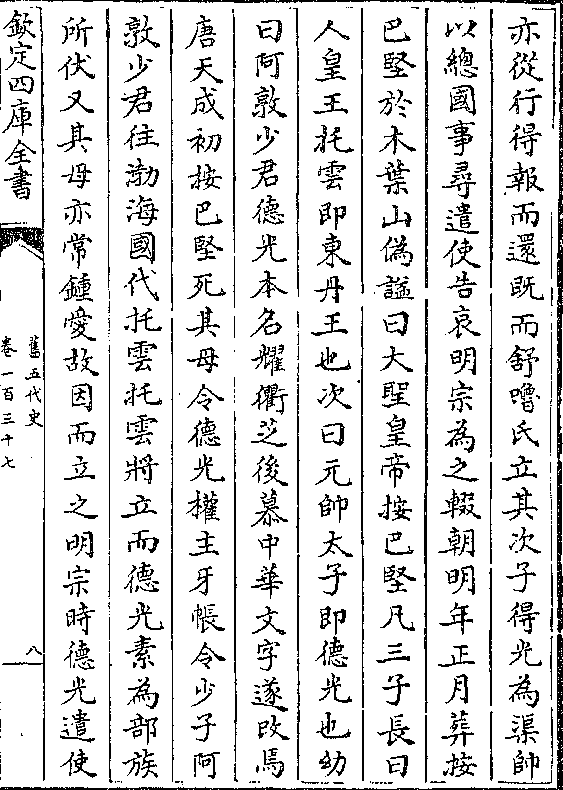 亦從行得報而還既而舒嚕氏立其次子得光為渠帥
以總國事尋遣使告哀明宗為之輟朝明年正月葬按
巴堅於木葉山偽諡曰大聖皇帝按巴堅凡三子長曰
人皇王托雲即東丹王也次曰元帥太子即德光也幼
曰阿敦少君德光本名耀衢芝後慕中華文字遂改焉
唐天成初按巴堅死其母令德光權主牙帳令少子阿
敦少君往渤海國代托雲托雲將立而德光素為部族
所伏又其母亦常鍾愛故因而立之明宗時德光遣使
欽定四庫全書
舊五代史
卷一百三十七
八